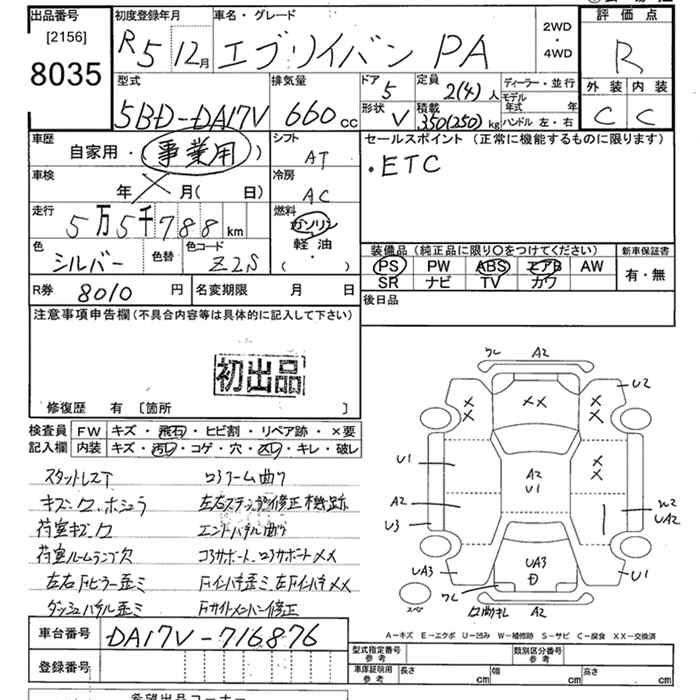 出品番号
[2156]
8035
初度登録年月
R5 12月
車名・グレード
エブリイバン PA
2WD
・
4WD
評価点
R
外装 内装
C C
型式
5BD-DA17V
排気量
660cc
ドア 5
形状 V
定員 2(4)人
積載 350(250)kg
ディーラー・並行
モデル年式 年
ハンドル 左・右
車歴
自家用・(事業用)
シフト
AT
セールスポイント(正常に機能するものに限ります)
・ETC
車検
年 月( 日)
冷房
AC
走行
5万5千788km
燃料
ガソリン
軽油
( )
色
シルバー
色替
色コード
Z2S
装備品(純正品に限り〇をつけてください)
PS PW ABS エアB AW
SR ナビ TV カワ
新車保証書
有・無
R券 8010円
名変期限 月 日
後日品
注意事項申告欄(不具合内容等は具体的に記入して下さい)
初出品
修復歴 有 〔箇所 〕
検査員記入欄
FW キズ・飛石・ヒビ割・リペア跡・×要
内装 キズ・汚レ・コゲ・穴・スレ・キレ・破レ
スタットレスT
キズ・ク、ホシュラ
荷室キズ・ク
荷室ルームランプ欠
左右Fピラー歪ミ
ダッシュパネル歪ミ
ロアアーム曲り
エンドパネル曲り
コアサポート、ロアサポートメメ
Fインパネ歪ミ、左Fインパネメメ
Fサイドメンバー修正
クレ A2
U2
××
××
××
××
U1
A2
U1
A2
U3
UA2
UA3
UA3
U1
クレ
A2
スペ
A-キズ E-エクボ U-凹み W-補修跡 S-サビ C-腐食 XX-交換済
車台番号
DA17V-716876
登録番号
型式指定番号
参考
類別区分番号
参考
車庫証明用
参考
長さ cm
幅 cm
高さ cm
希望出品コーナー